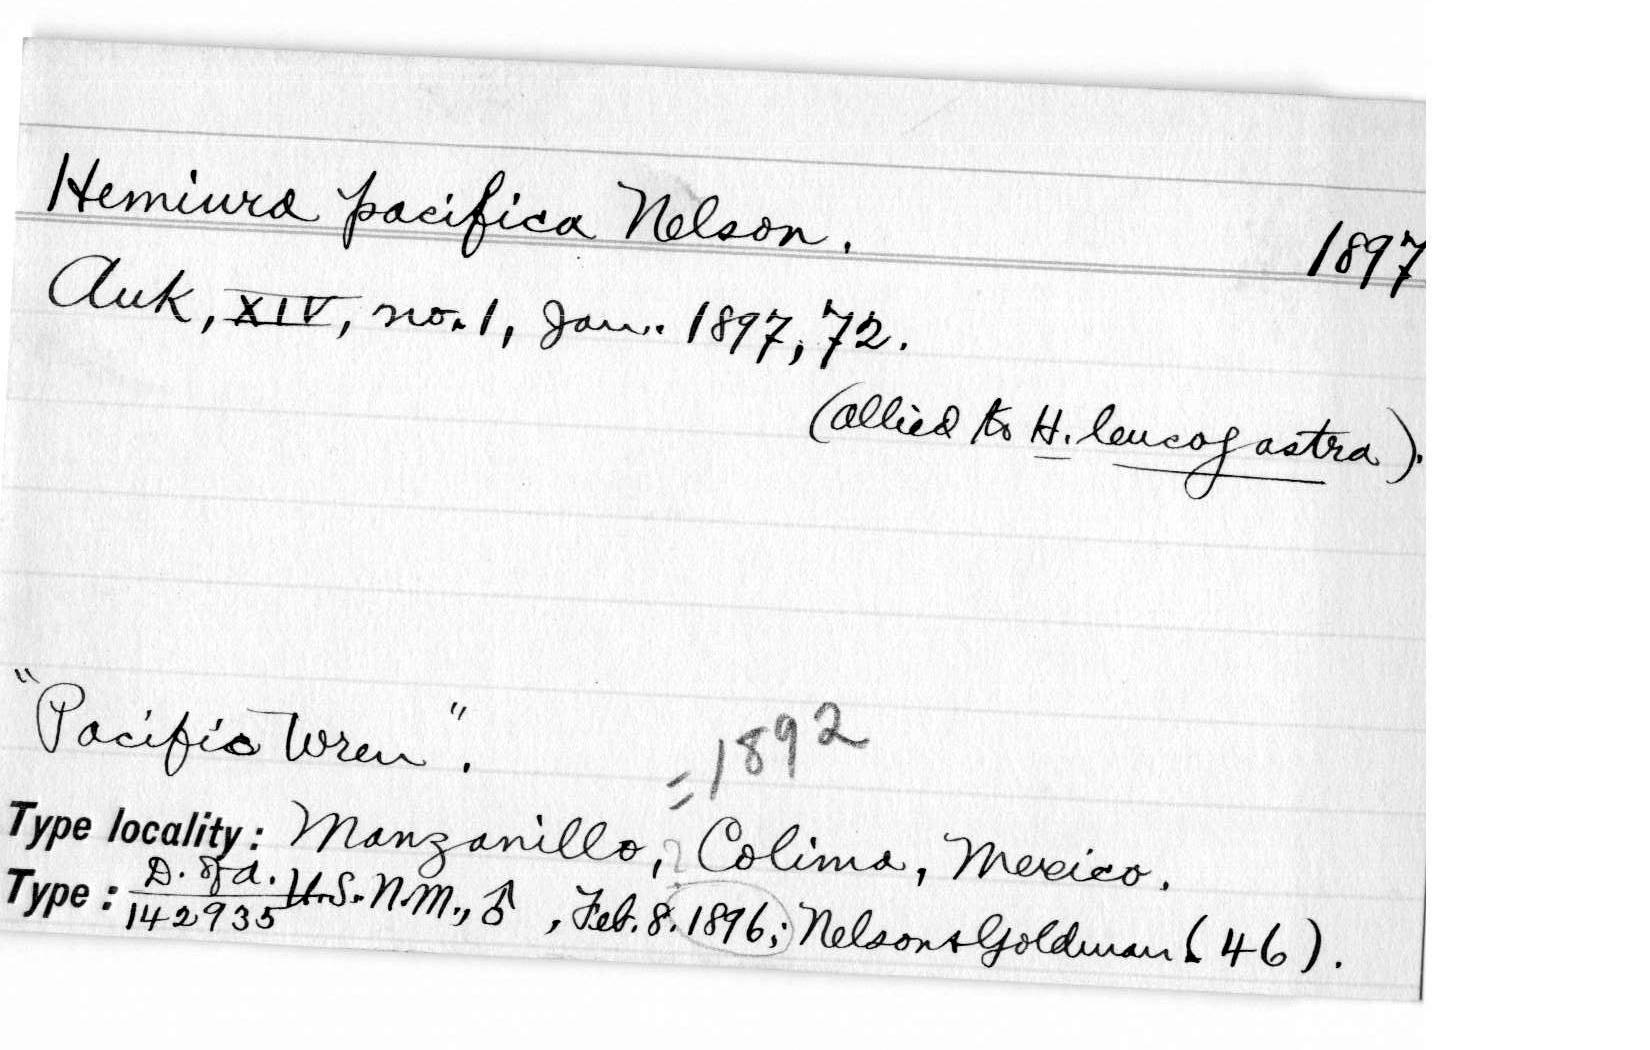 Hemiura pacifica Nelson. 1897
Auk, XIV, no. 1, Jan. 1897, 72.
(allied to H. leucogastra).
"Pacific Wren".
=1892
Type locality: Manzanillo, ? Colima, Mexico.
Type: D. of A. 142935 U.S.N.M., ♂, Feb. 8. 1896; Nelson & Goldman (46).